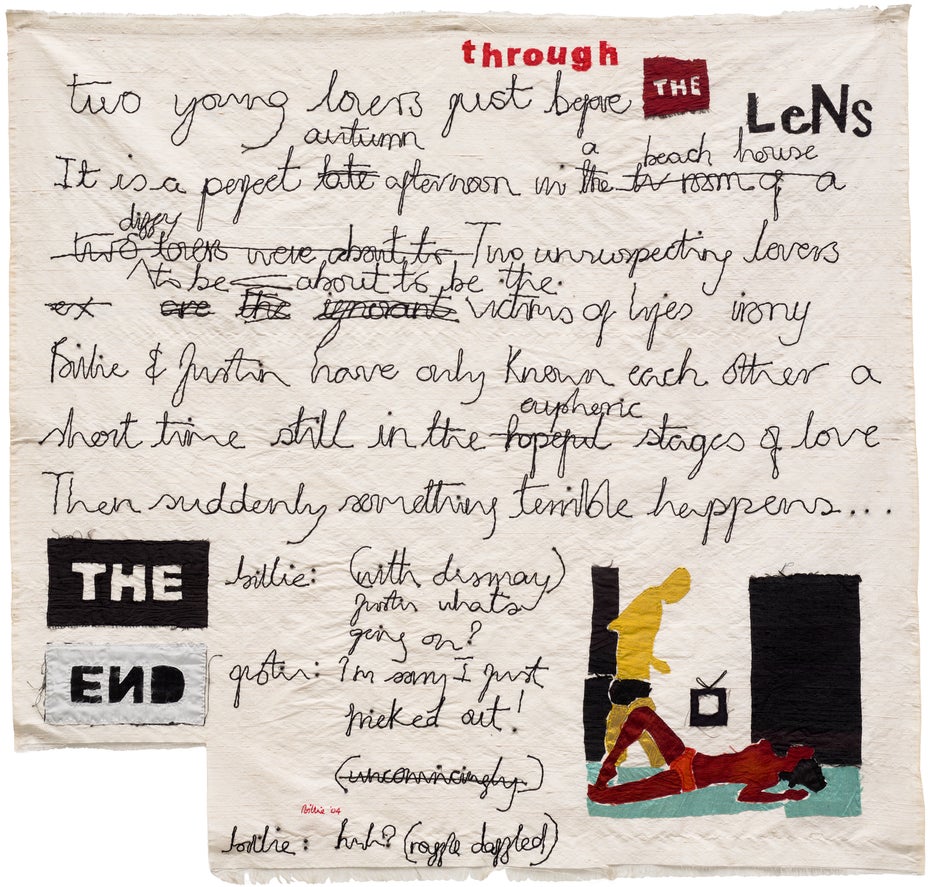 through
two young lovers just before THE LeNS
autumn a beach house
It is a perfect late afternoon in the tv room of a
dizzy
two lovers were about to Two unsuspecting lovers
to be about to be the
ex are the ignorant victims of lifes irony
Billie & Justin have only known each other a
euphoric
short time still in the hopeful stages of love
Then suddenly something terrible happens...
THE
END
billie: (with dismay)
Justin whats
going on?
justin: I'm sorry I just
out!
(unconvincingly)
Billie '04
billie: huh? (razzle dazzled)